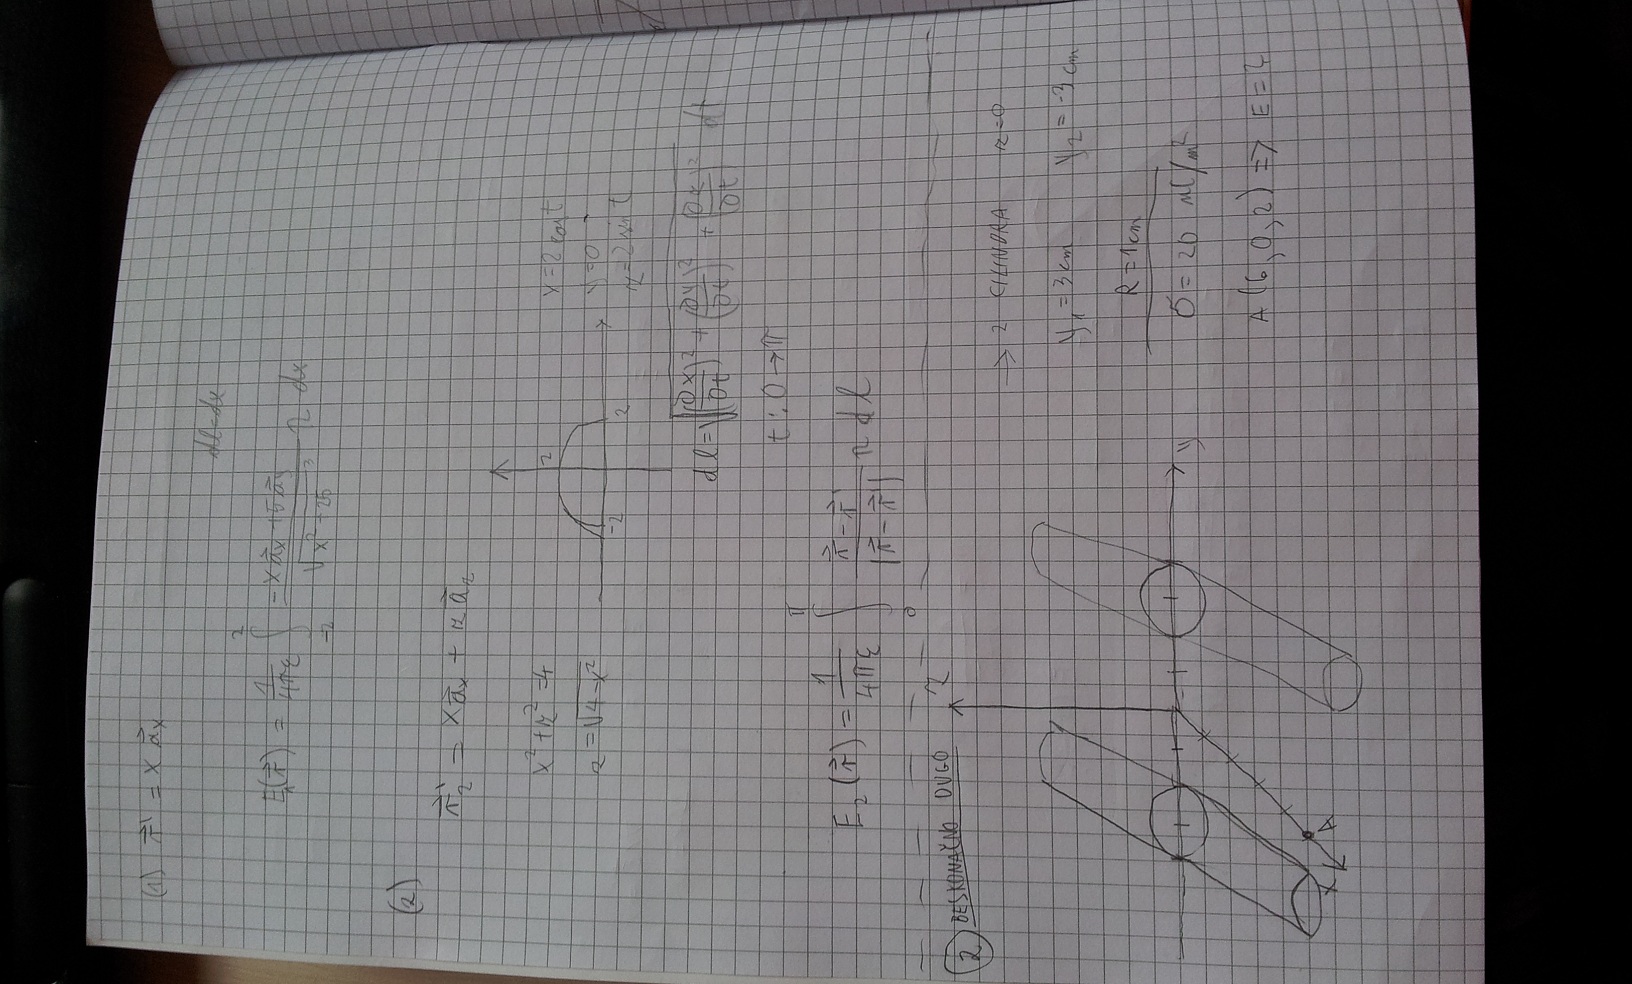 (1) r⃗' = x a⃗x
dl=dx
E₁(r⃗) = 1/4πε ∫₋₂² (-x a⃗x + 5 a⃗y)/√(x²+25)³ λ dx
(2)
r⃗₂' = x a⃗x + z a⃗z
x² + z² = 4
z = √(4-x²)
2
-2
2
x = 2 cos t
y = 0
z = 2 sin t
dl = √((∂x/∂t)² + (∂y/∂t)² + (∂z/∂t)²) dt
t : 0 → π
E₂(r⃗) = 1/4πε ∫₀^π (r⃗ - r⃗')/|r⃗ - r⃗'| λ dl
② BESKONAČNO DUGO
z
→ 2 CILINDRA z=0
y₁ = 3 cm y₂ = -3 cm
R = 1cm
y
σ = 20 nC/m²
A (6, 0, 2) => E = ?
x
A